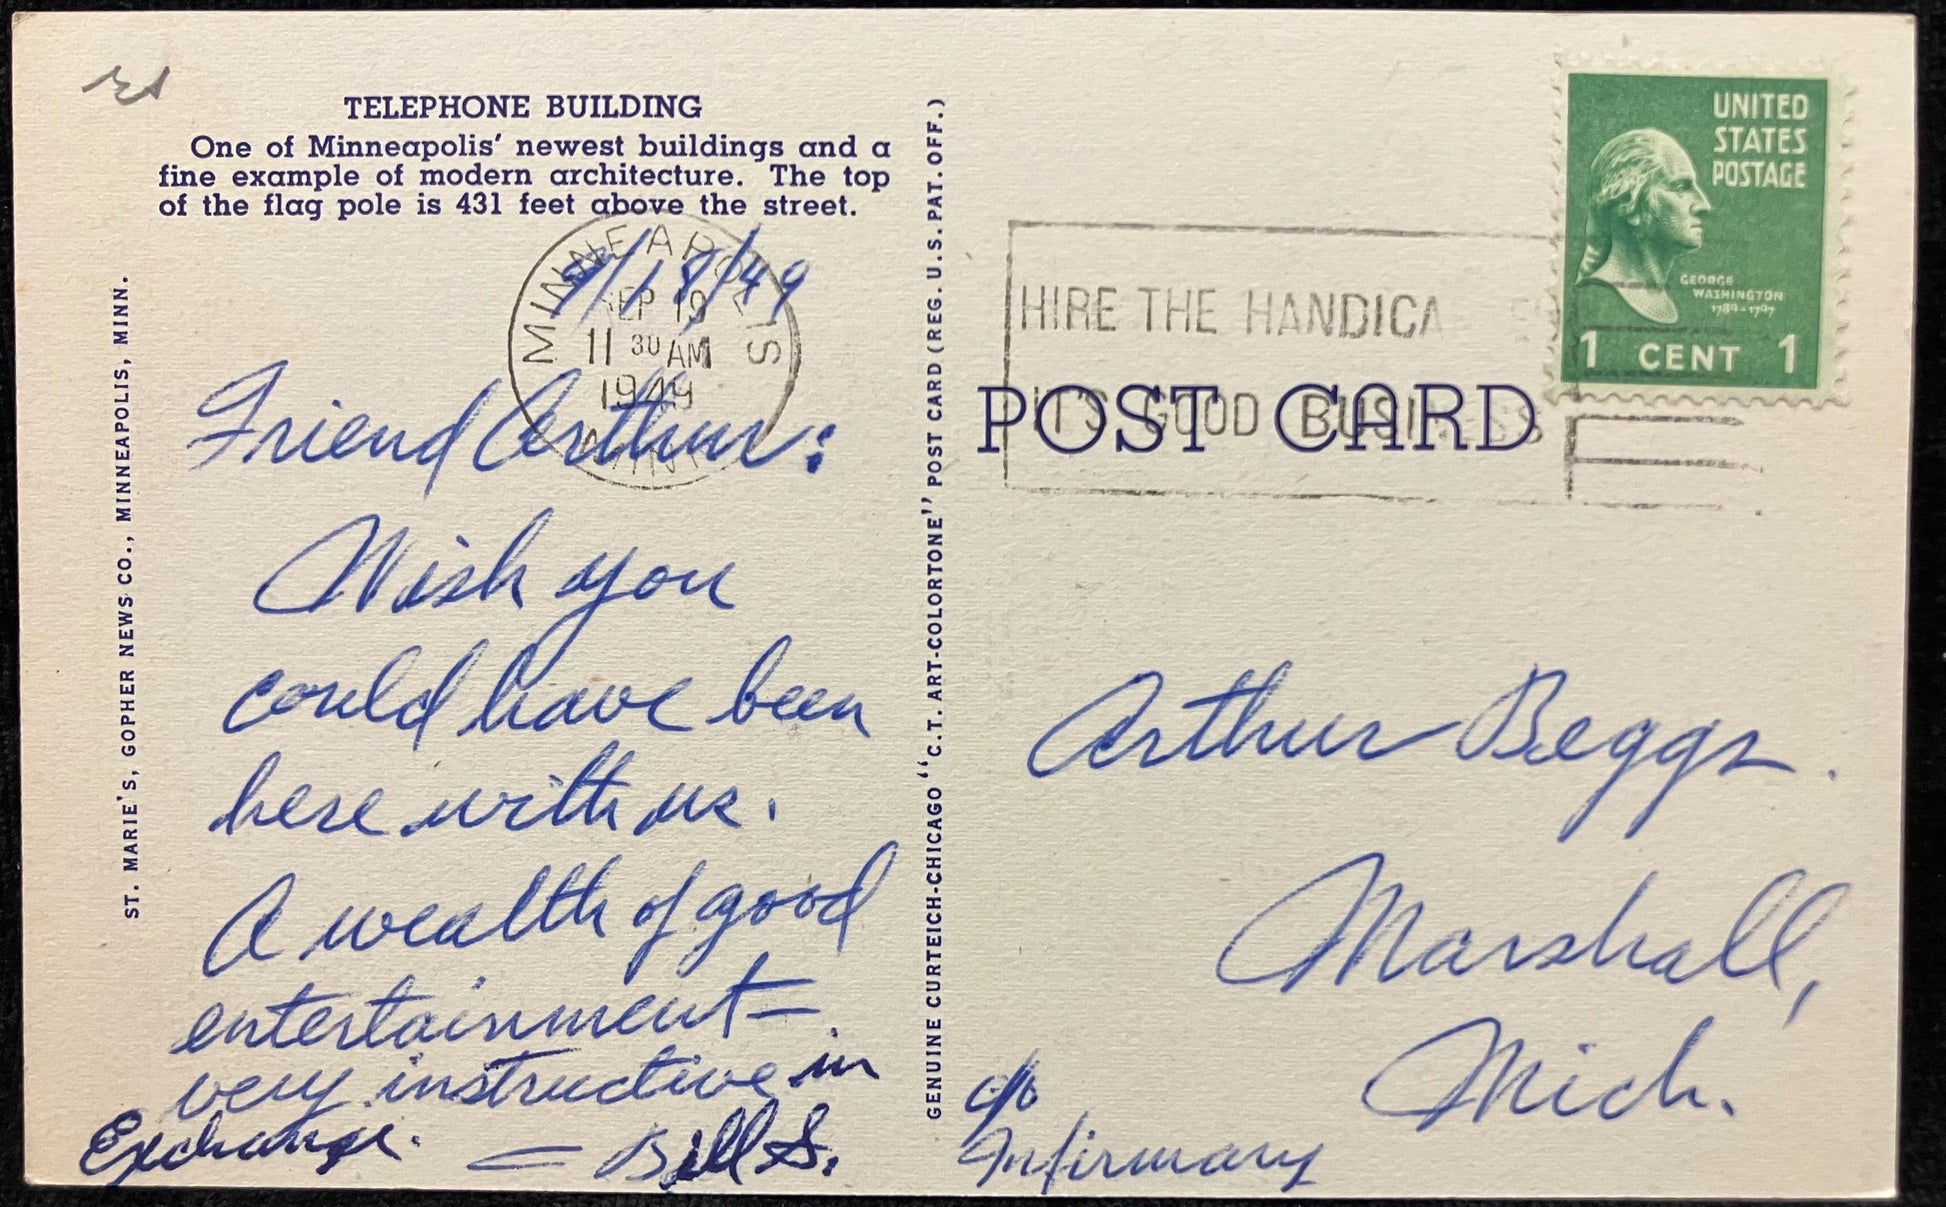 TELEPHONE BUILDING
One of Minneapolis' newest buildings and a
fine example of modern architecture. The top
of the flag pole is 431 feet above the street.
ST. MARIE'S, GOPHER NEWS CO., MINNEAPOLIS, MINN.
MINNEAPOLIS
SEP 19
11 30 AM
1949
MINN.
9/18/49
Friend Arthur:
Wish you
could have been
here with us.
A wealth of good
entertainment —
very instructive in
Exchange.
— Bill S.
GENUINE CURTEICH-CHICAGO "C.T. ART-COLORTONE" POST CARD (REG. U.S. PAT. OFF.)
HIRE THE HANDICA
IT'S GOOD BUSINESS
POST CARD
UNITED
STATES
POSTAGE
GEORGE
WASHINGTON
1789-1797
1 CENT 1
Arthur Beggs.
Marshall,
Mich.
c/o
Infirmary